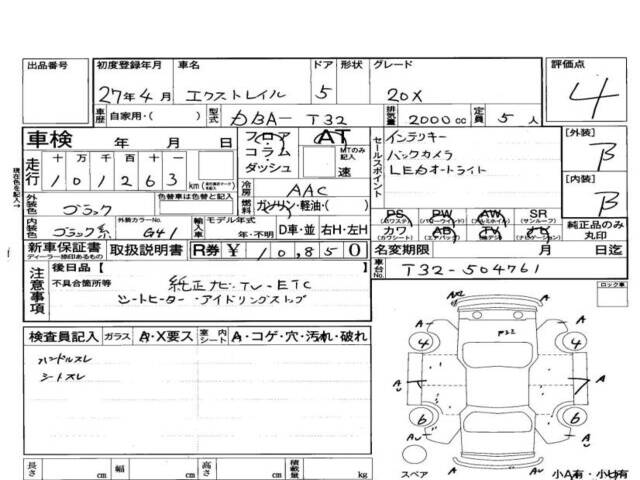 出品番号 初度登録年月 車名 ドア 形状 グレード 評価点
27年4月 エクストレイル 5 20X 4
車歴 自家用・( ) 型式 DBA-T32 排気量 2000cc 定員 5人
車検 年 月 日 フロア・コラム・ダッシュ AT MTのみ記入 速
現在色を記入→
走行 十 万 千 百 十 一
1 0 1 2 6 3 km
冷房 AAC
燃料 ガソリン・軽油・( )
セールスポイント
インテリキー
バックカメラ
LEDオートライト
[外装] B
[内装] B
外装色 ブラック 色替車は色替と記入
内装色 ブラック系 外装カラーNo. G41 輸入車 モデル年式 年・不明 D車・並 右H・左H
PS PW AW SR
(パワステ) (パワーウインド) (サンルーフ)
カワ AB TV ナビ
(カワシート) (エアバッグ) (ナビゲーション)
純正品のみ丸印
新車保証書 取扱説明書 R券 ¥10,850 名変期限 月 日迄
ディーラー捺印あるもの
台No. T32-504761
注意事項
後日品【 】
不具合箇所等 純正ナビ・TV・ETC
シートヒーター・アイドリングストップ
ロック車
検査員記入 ガラス A・X要ス 室内シート A・コゲ・穴・汚れ・破れ
ハンドルスレ
シートスレ
AX2
A A
4 4
A
6 6
A
AU A
スペア 小A有・小U有
長さ cm 幅 cm 高さ cm 積載量 kg